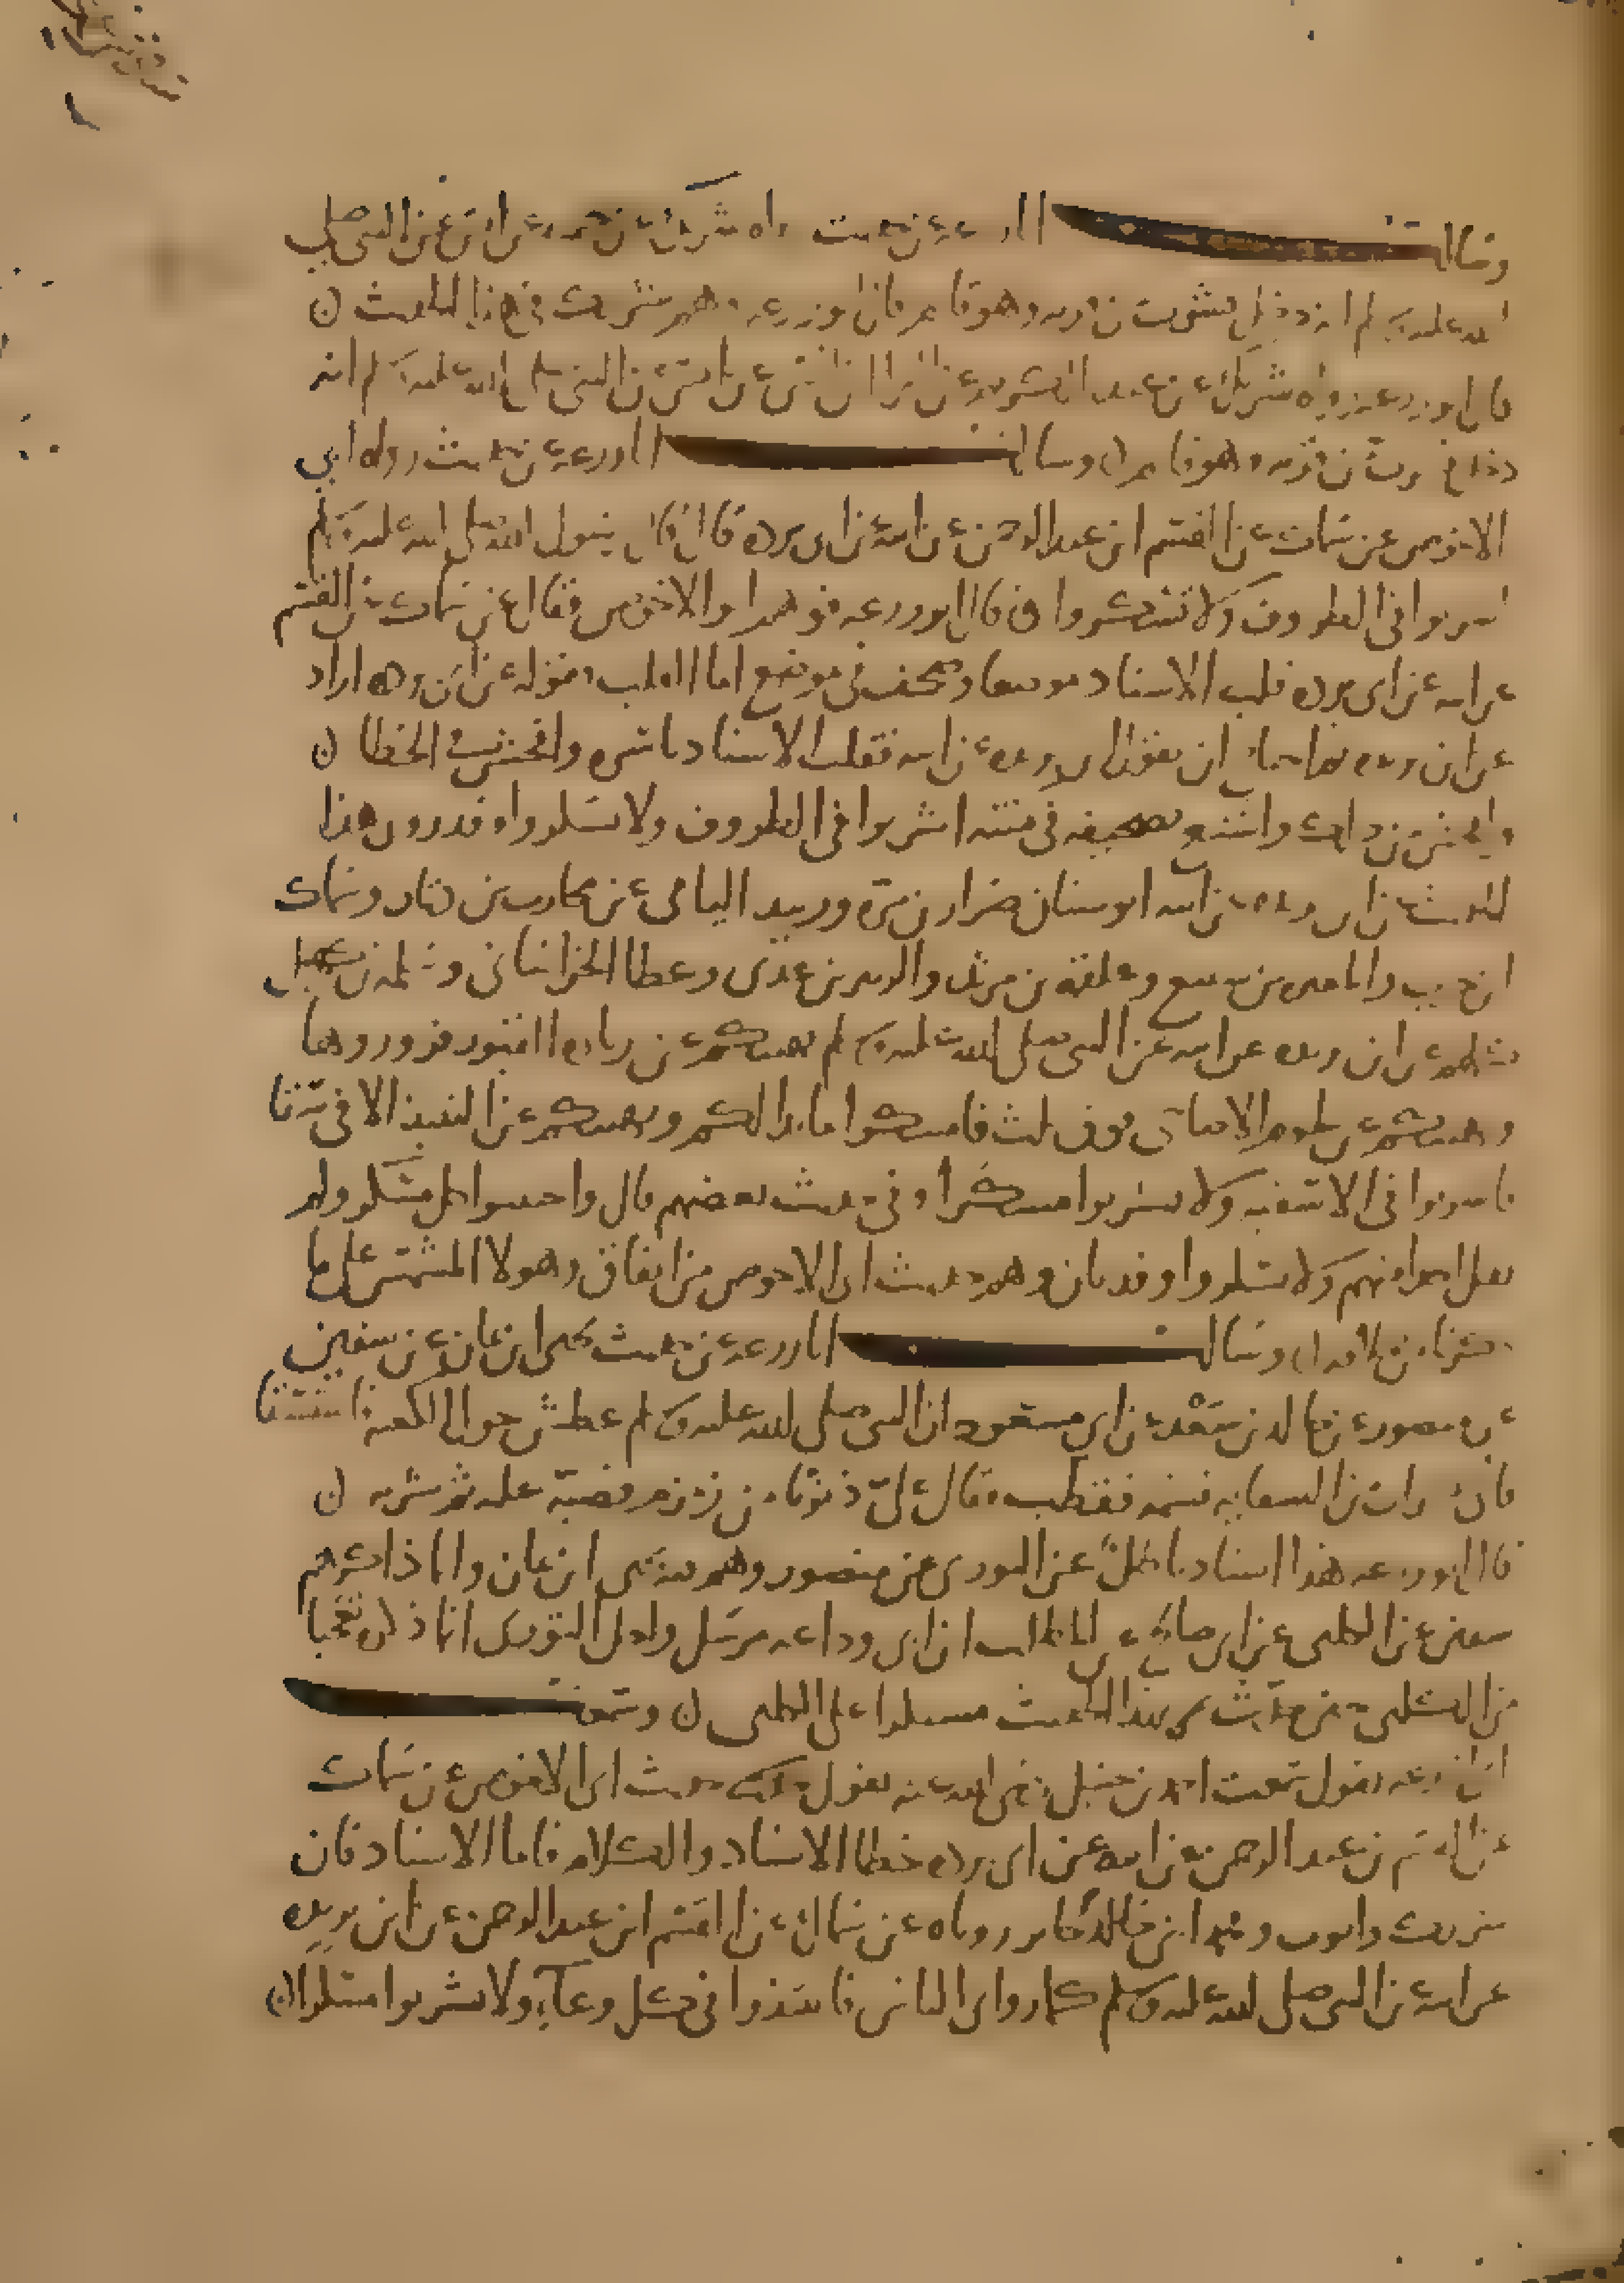 وسالت ابا زرعه عن حديث رواه شريك عن حميد عن انس عن النبي صلى
الله عليه وسلم انه دخل فشرب من قربه وهو قائم قال ابوزرعه وهم شريك في هذا الحديث ن
قال ابو زرعه رواه شريك عن عبد الكريم عن البرا ابن ابنه انس عن انس عن النبي صلى الله عليه وسلم انه
شرب من قربه وهو قائم ن وسالت ابا زرعه عن حديث رواه ابي
الاحوص عن سماك عن القسم ابن عبد الرحمن عن ابيه عن ابي برده قال قال رسول الله صلى الله عليه وسلم
اشربوا في الظروف ولا تسكروا ن قال ابو زرعه فوهم ابو الاحوص فقال عن سماك عن القسم
عن ابيه عن ابي برده قلب الاسناد موضعا وصحف في موضع اما القلب فقوله عن ابي برده اراد
عن ابن بريده ثم احتاج ان يقول ابن بريده عن ابيه فقلب الاسناد باسره وافحش في الخطا ن
وافحش من ذلك واشنع تصحيفه في متنه اشربوا في الظروف ولا تسكروا وقد روى هذا
الحديث عن ابن بريده عن ابيه ابو سنان ضرار بن مره وزبيد اليامي عن محارب بن دثار وسماك
ابن حرب والمغيره بن سبيع وعلقمه بن مرثد والزبير بن عدي وعطا الخراساني وسلمه بن كهيل
كلهم عن ابن بريده عن ابيه عن النبي صلى الله عليه وسلم نهيتكم عن زياره القبور فزوروها
ونهيتكم عن لحوم الاضاحي فوق ثلث فامسكوا ما بدا لكم ونهيتكم عن النبيذ الا في سقا
فاشربوا في الاسقيه ولا تشربوا مسكرا وفي حديث بعضهم قال واجتنبوا كل مسكر ولم
يقل احد منهم ولا تسكروا وقد بان وهم حديث ابي الاحوص من اتفاق هولا المسمين على ما
ذكرنا من خلافه ن وسالت ابا زرعه عن حديث يحيى ابن يمان عن سفين
عن منصور عن خالد بن سعد عن ابي مسعود ان النبي صلى الله عليه وسلم عطش حول الكعبه فاستسقا
فاتي بشراب من السقايه فشمه فقطب فقال علي ذنوبا من زمزم فصبه عليه ثم شربه ن
قال ابو زرعه هذا اسناد باطل عن الثوري عن منصور وهم فيه يحيى ابن يمان وانما ذاكرهم
سفين عن الكلبي عن ابي صالح عن المطلب ابن ابي وداعه مرسل ولعل الثوري انما ذكره تعجبا
من الكلبي حين حدث بهذا الحديث مستنكرا على الكلبي ن وسمعت
ابا زرعه يقول سمعت احمد بن حنبل رضي الله عنه يقول حديث ابي الاحوص عن سماك
عن القسم بن عبد الرحمن عن ابيه عن ابي برده خطا الاسناد والكلام فاما الاسناد فان
شريك وايوب ومحمد ابني جابر روياه عن سماك عن القسم ابن عبد الرحمن عن ابن بريده
عن ابيه عن النبي صلى الله عليه وسلم كما روى الناس فانتبذوا في كل وعاء ولا تشربوا مسكرا ن